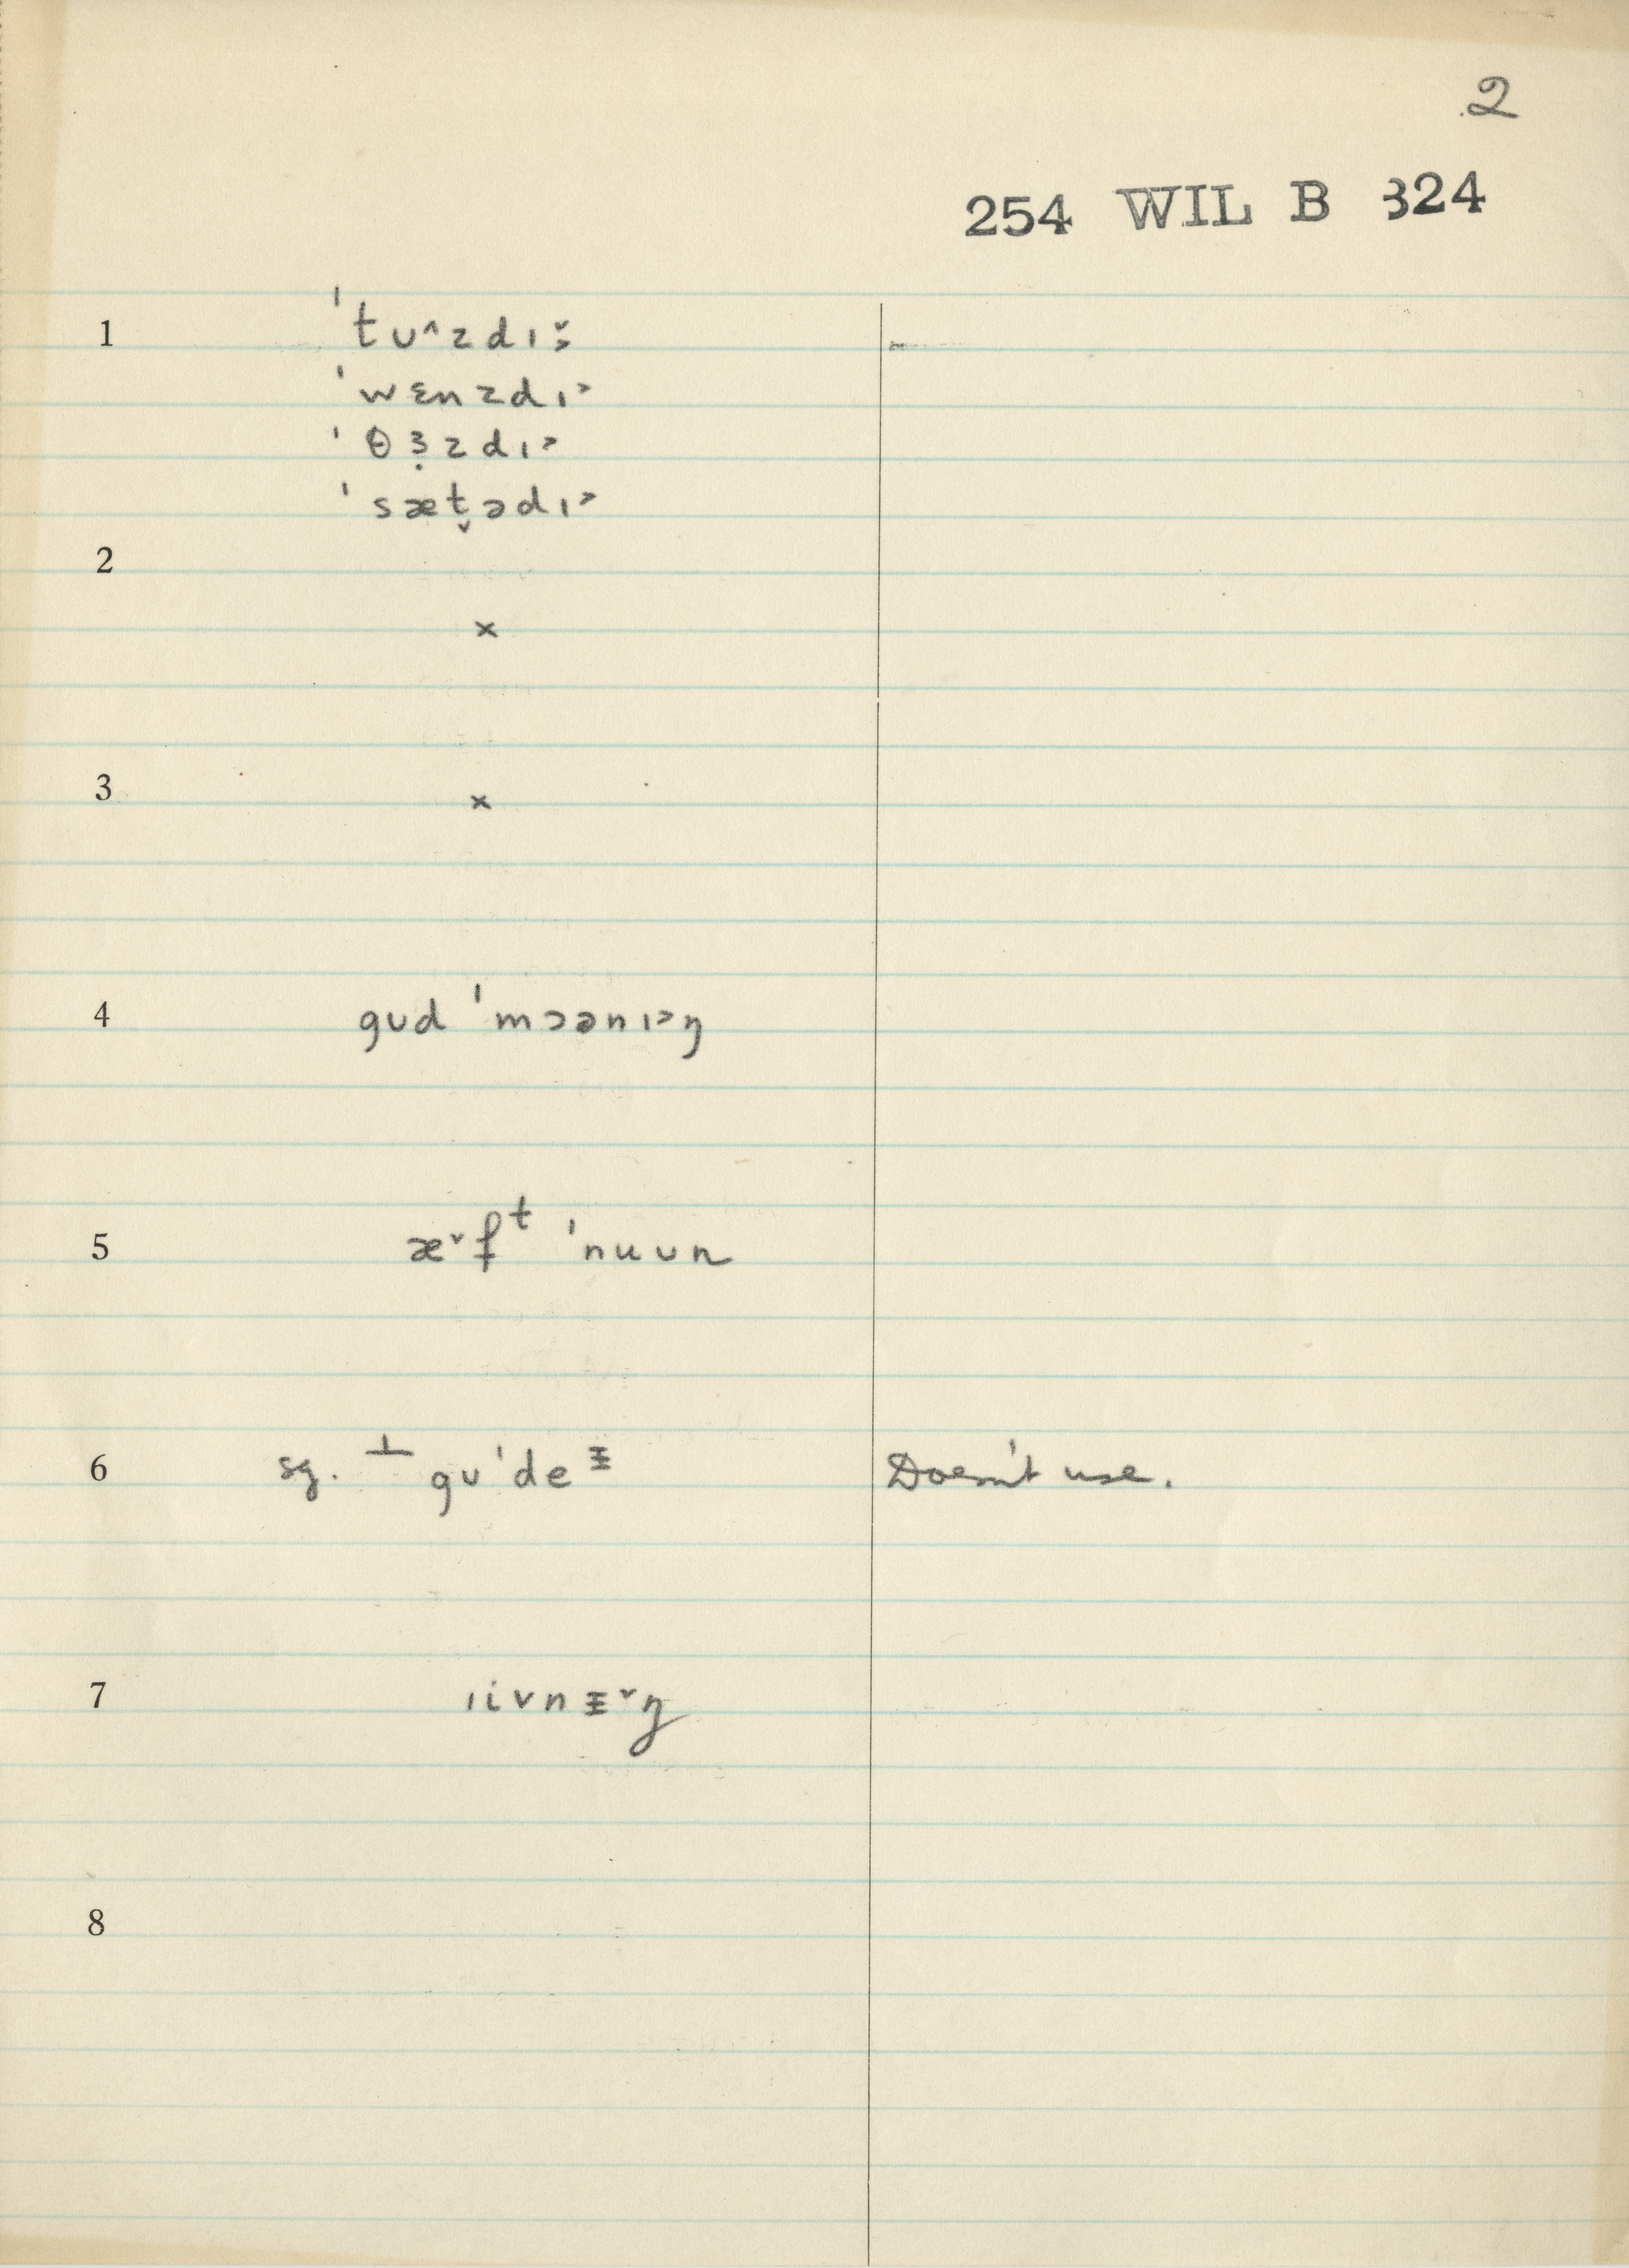 2
254 WIL B 324
1 ˈtʊ^zdɪ˅˃
ˈwɛnzdɪ˃
ˈθɜ̣zdɪ˃
ˈsæt̬ədɪ˃
2
×
3
×
4 gʊd ˈmɔənɪ˃ŋ
5 æ˅fᵗ ˈnuʊn
6 sg. ⊥ gʊˈdeᵻ Doesn't use.
7 ɪivnᵻ˅ŋ
8